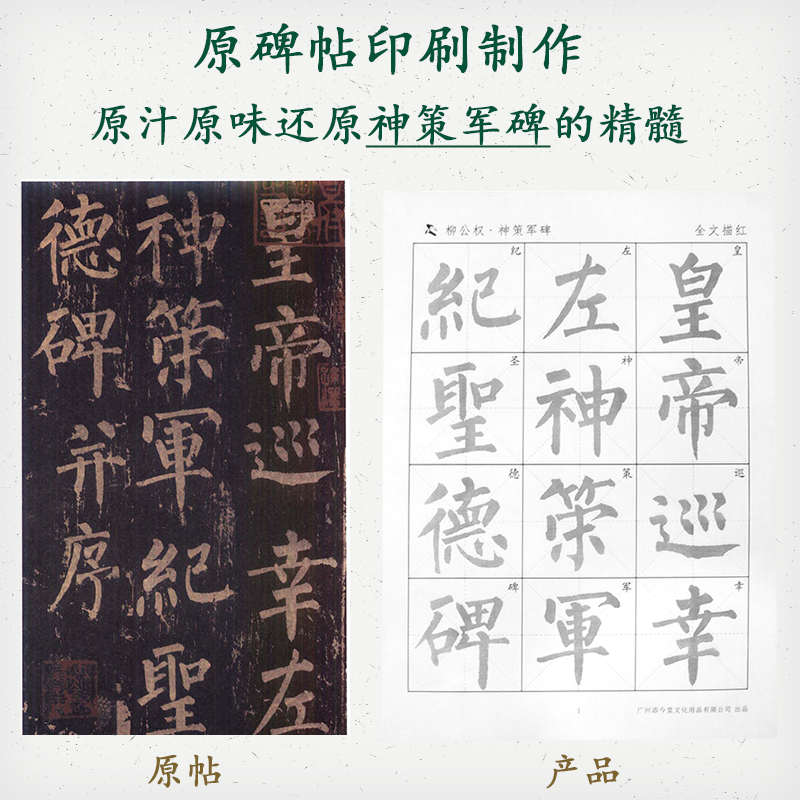 原碑帖印刷制作
原汁原味还原神策军碑的精髓
皇帝巡幸左
神策軍紀聖
德碑并序
柳公权·神策军碑
全文描红
皇 皇
帝 帝
巡 巡
幸 幸
左 左
神 神
策 策
军 軍
纪 紀
圣 聖
德 德
碑 碑
1
文化用品有限公司 出品
原帖
产品